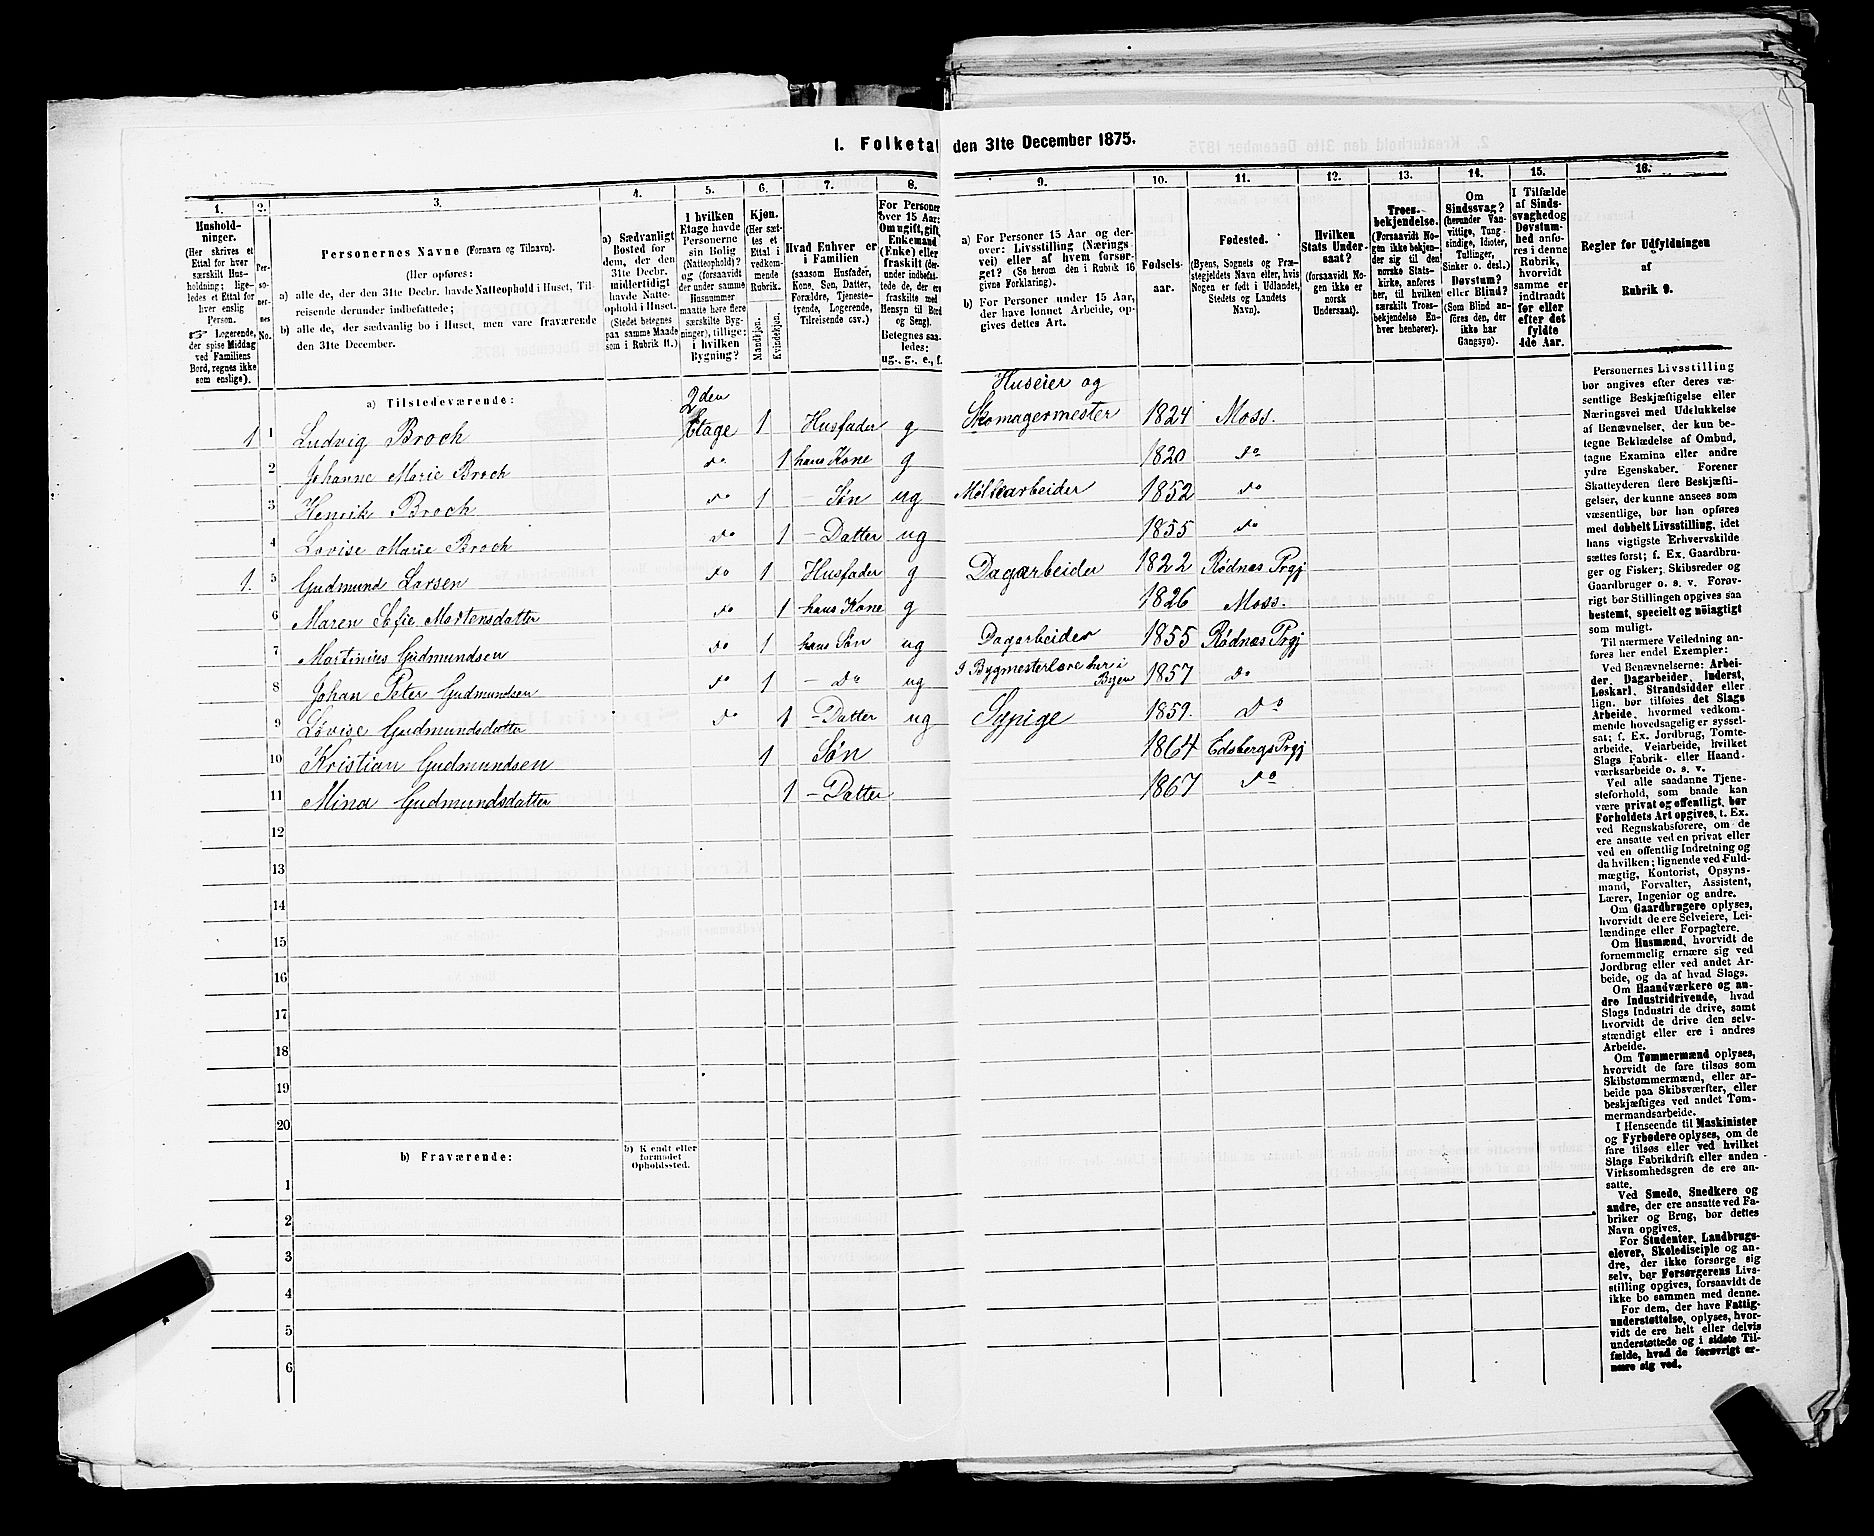 1. Folketal den 31te December 1875.
1.
2.
3.
4.
5.
6.
7.
8.
9.
10.
11.
12.
13.
14.
15.
16.
Hushold-
ninger.
(Her skrives et
Ettal for hver
særskilt Hus-
holdning; lige-
ledes et Ettal for
hver enslig
Person.
☞ Logerende,
der spise Middag
ved Familiens
Bord, regnes ikke
som enslige).
Per-
so-
ner-
nes
No.
Personernes Navne (Fornavn og Tilnavn).
(Her opføres:
a) alle de, der den 31te Decbr. havde Natteophold i Huset, Til-
reisende derunder indbefattede;
b) alle de, der sædvanlig bo i Huset, men vare fraværende
den 31te December.
a) Sædvanligt
Bosted for
dem, der den
31te Decbr.
midlertidigt
havde Natte-
ophold i Huset.
(Stedet betegnes
paa samme Maade
som i Rubrik 11.)
I hvilken
Etage havde
Personerne
sin Bolig
(Natteophold)?
og (forsaavidt
der under samme
Husnummer
maatte høre flere
særskilte Byg-
ninger), tillige:
i hvilken
Bygning?
Kjøn.
(Her sæt-
tes et
Ettal i
vedkom-
mende
Rubrik.
Mandkjøn.
Kvindekjøn.
Hvad Enhver er
i Familien
(saasom Husfader,
Kone, Søn, Datter,
Forældre, Tjeneste-
tyende, Logerende,
Tilreisende osv.)
For Personer
over 15 Aar:
Om ugift, gift,
Enkemand
(Enke) eller
fraskilt (der-
under indbefat-
tede de, der ere
fraskilte med
Hensyn til Bord
og Seng).
Betegnes saa-
ledes:
ug., g., e., f.
a) For Personer 15 Aar og der-
over: Livsstilling (Nærings-
vei) eller af hvem forsør-
get? (Se herom den i Rubrik 16
givne Forklaring).
b) For Personer under 15 Aar,
der have lønnet Arbeide, op-
gives dettes Art.
Fødsels-
aar.
Fødested.
(Byens, Sognets og Præ-
stegjeldets Navn eller, hvis
Nogen er født i Udlandet,
Stedets og Landets
Navn).
Hvilken
Stats Under-
saat?
(forsaavidt No-
gen ikke er
norsk
Undersaat).
Troes-
bekjendelse.
(Forsaavidt No-
gen ikke bekjen-
der sig til den
norske Stats-
kirke, anføres
her, til hvilken
særskilt Troes-
bekjendelse En-
hver henhører).
Om
Sindssvag?
(herunder Van-
vittige, Tung-
sindige, Idioter,
Tullinger,
Sinker o. desl.)
Døvstum?
eller Blind?
(Som Blind an-
føres den, der
ikke har
Gangsyn).
I Tilfælde
af Sinds-
svaghed og
Døvstum-
hed anfø-
res i denne
Rubrik,
hvorvidt
samme er
indtraadt
før eller
efter det
fyldte
4de Aar.
Regler for Udfyldningen
af
Rubrik 9.
a) Tilstedeværende:
1 1 Ludvig Broch 2den Etage 1 Husfader g Huseier og Skomagermester 1824 Moss.
2 Johanne Marie Broch do 1 hans Kone g 1820 do
3 Henrik Broch do 1 – Søn ug Møllearbeider 1852 do
4 Lovise Marie Broch do 1 – Datter ug 1855 do
1. 5 Gudmund Larsen do 1 Husfader g Dagarbeider 1822 Rødnæs Prgj
6 Maren Sofie Mortensdatter do 1 hans Kone g 1826 Moss.
7 Martinius Gudmundsen do 1 hans Søn ug Dagarbeider 1855 Rødnæs Prgj
8 Johan Peter Gudmundsen do 1 – do ug I Bygmesterlære her i Byen 1857 do
9 Lovise Gudmundsdatter do 1 – Datter ug Sypige 1859. do
10 Kristian Gudmundsen 1 Søn 1864 Edsbergs Prgj
11 Mina Gudmundsdatter 1 – Datter 1867 do
12
13
14
15
16
17
18
19
20
b) Fraværende:
b) Kjendt eller
formodet
Opholdssted.
1
2
3
4
5
6
Personernes Livsstilling
bør angives efter deres væ-
sentlige Beskjæftigelse eller
Næringsvei med Udelukkelse
af Benævnelser, der kun be-
tegne Beklædelse af Ombud,
tagne Examina eller andre
ydre Egenskaber. Forener
Skatteyderen flere Beskjæfti-
gelser, der kunne ansees som
væsentlige, bør han opføres
med dobbelt Livsstilling, idet
hans vigtigste Erhvervskilde
sættes først; f. Ex. Gaardbru-
ger og Fisker; Skibsreder og
Gaardbruger o. s. v. Forøv-
rigt bør Stillingen opgives saa
bestemt, specielt og nøiagtigt
som muligt.
Til nærmere Veiledning an-
føres her endel Exempler:
Ved Benævnelserne: Arbei-
der, Dagarbeider, Inderst,
Løskarl, Strandsidder eller
lign. bør tilføies det Slags
Arbeide, hvormed vedkom-
mende hovedsagelig er syssel-
sat; f. Ex. Jordbrug, Tomte-
arbeide, Veiarbeide, hvilket
Slags Fabrik- eller Haand-
værksarbeide o. s. v.
Ved alle saadanne Tjene-
steforhold, som baade kan
være privat og offentligt, bør
Forholdets Art opgives, t. Ex.
ved Regnskabsførere, om de
ere ansatte ved en privat eller
ved en offentlig Indretning og
da hvilken; lignende ved Fuld-
mægtig, Kontorist, Opsyns-
mand, Forvalter, Assistent,
Lærer, Ingeniør og andre.
Om Gaardbrugere oplyses,
hvorvidt de ere Selveiere, Lei-
lændinge eller Forpagtere.
Om Husmænd, hvorvidt de
fornemmelig ernære sig ved
Jordbrug eller ved andet Ar-
beide, og da af hvad Slags.
Om Haandværkere og an-
dre Industridrivende, hvad
Slags Industri de drive, samt
hvorvidt de drive den selv-
stændigt eller ere i andres
Arbeide.
Om Tømmermænd oplyses,
hvorvidt de fare tilsøs som
Skibstømmermænd, eller ar-
beide paa Skibsværfter, eller
beskjæftiges ved andet Tøm-
mermandsarbeide.
I Henseende til Maskinister
og Fyrbødere oplyses, om de
fare tilsøs eller ved hvilket
Slags Fabrikdrift eller anden
Virksomhedsgren de ere an-
satte.
Ved Smede, Snedkere og
andre, der ere ansatte ved Fa-
briker og Brug, bør dettes
Navn opgives.
For Studenter, Landbrugs-
elever, Skoledisciple og an-
dre, der ikke forsørge sig
selv, bør Forsørgerens Livs-
stilling opgives, forsaavidt de
ikke bo sammen med denne.
For dem, der have Fattig-
understøttelse, oplyses, hvor-
vidt de ere helt eller delvis
understøttede og i sidste Til-
fælde, hvad de forøvrigt er-
nære sig ved.